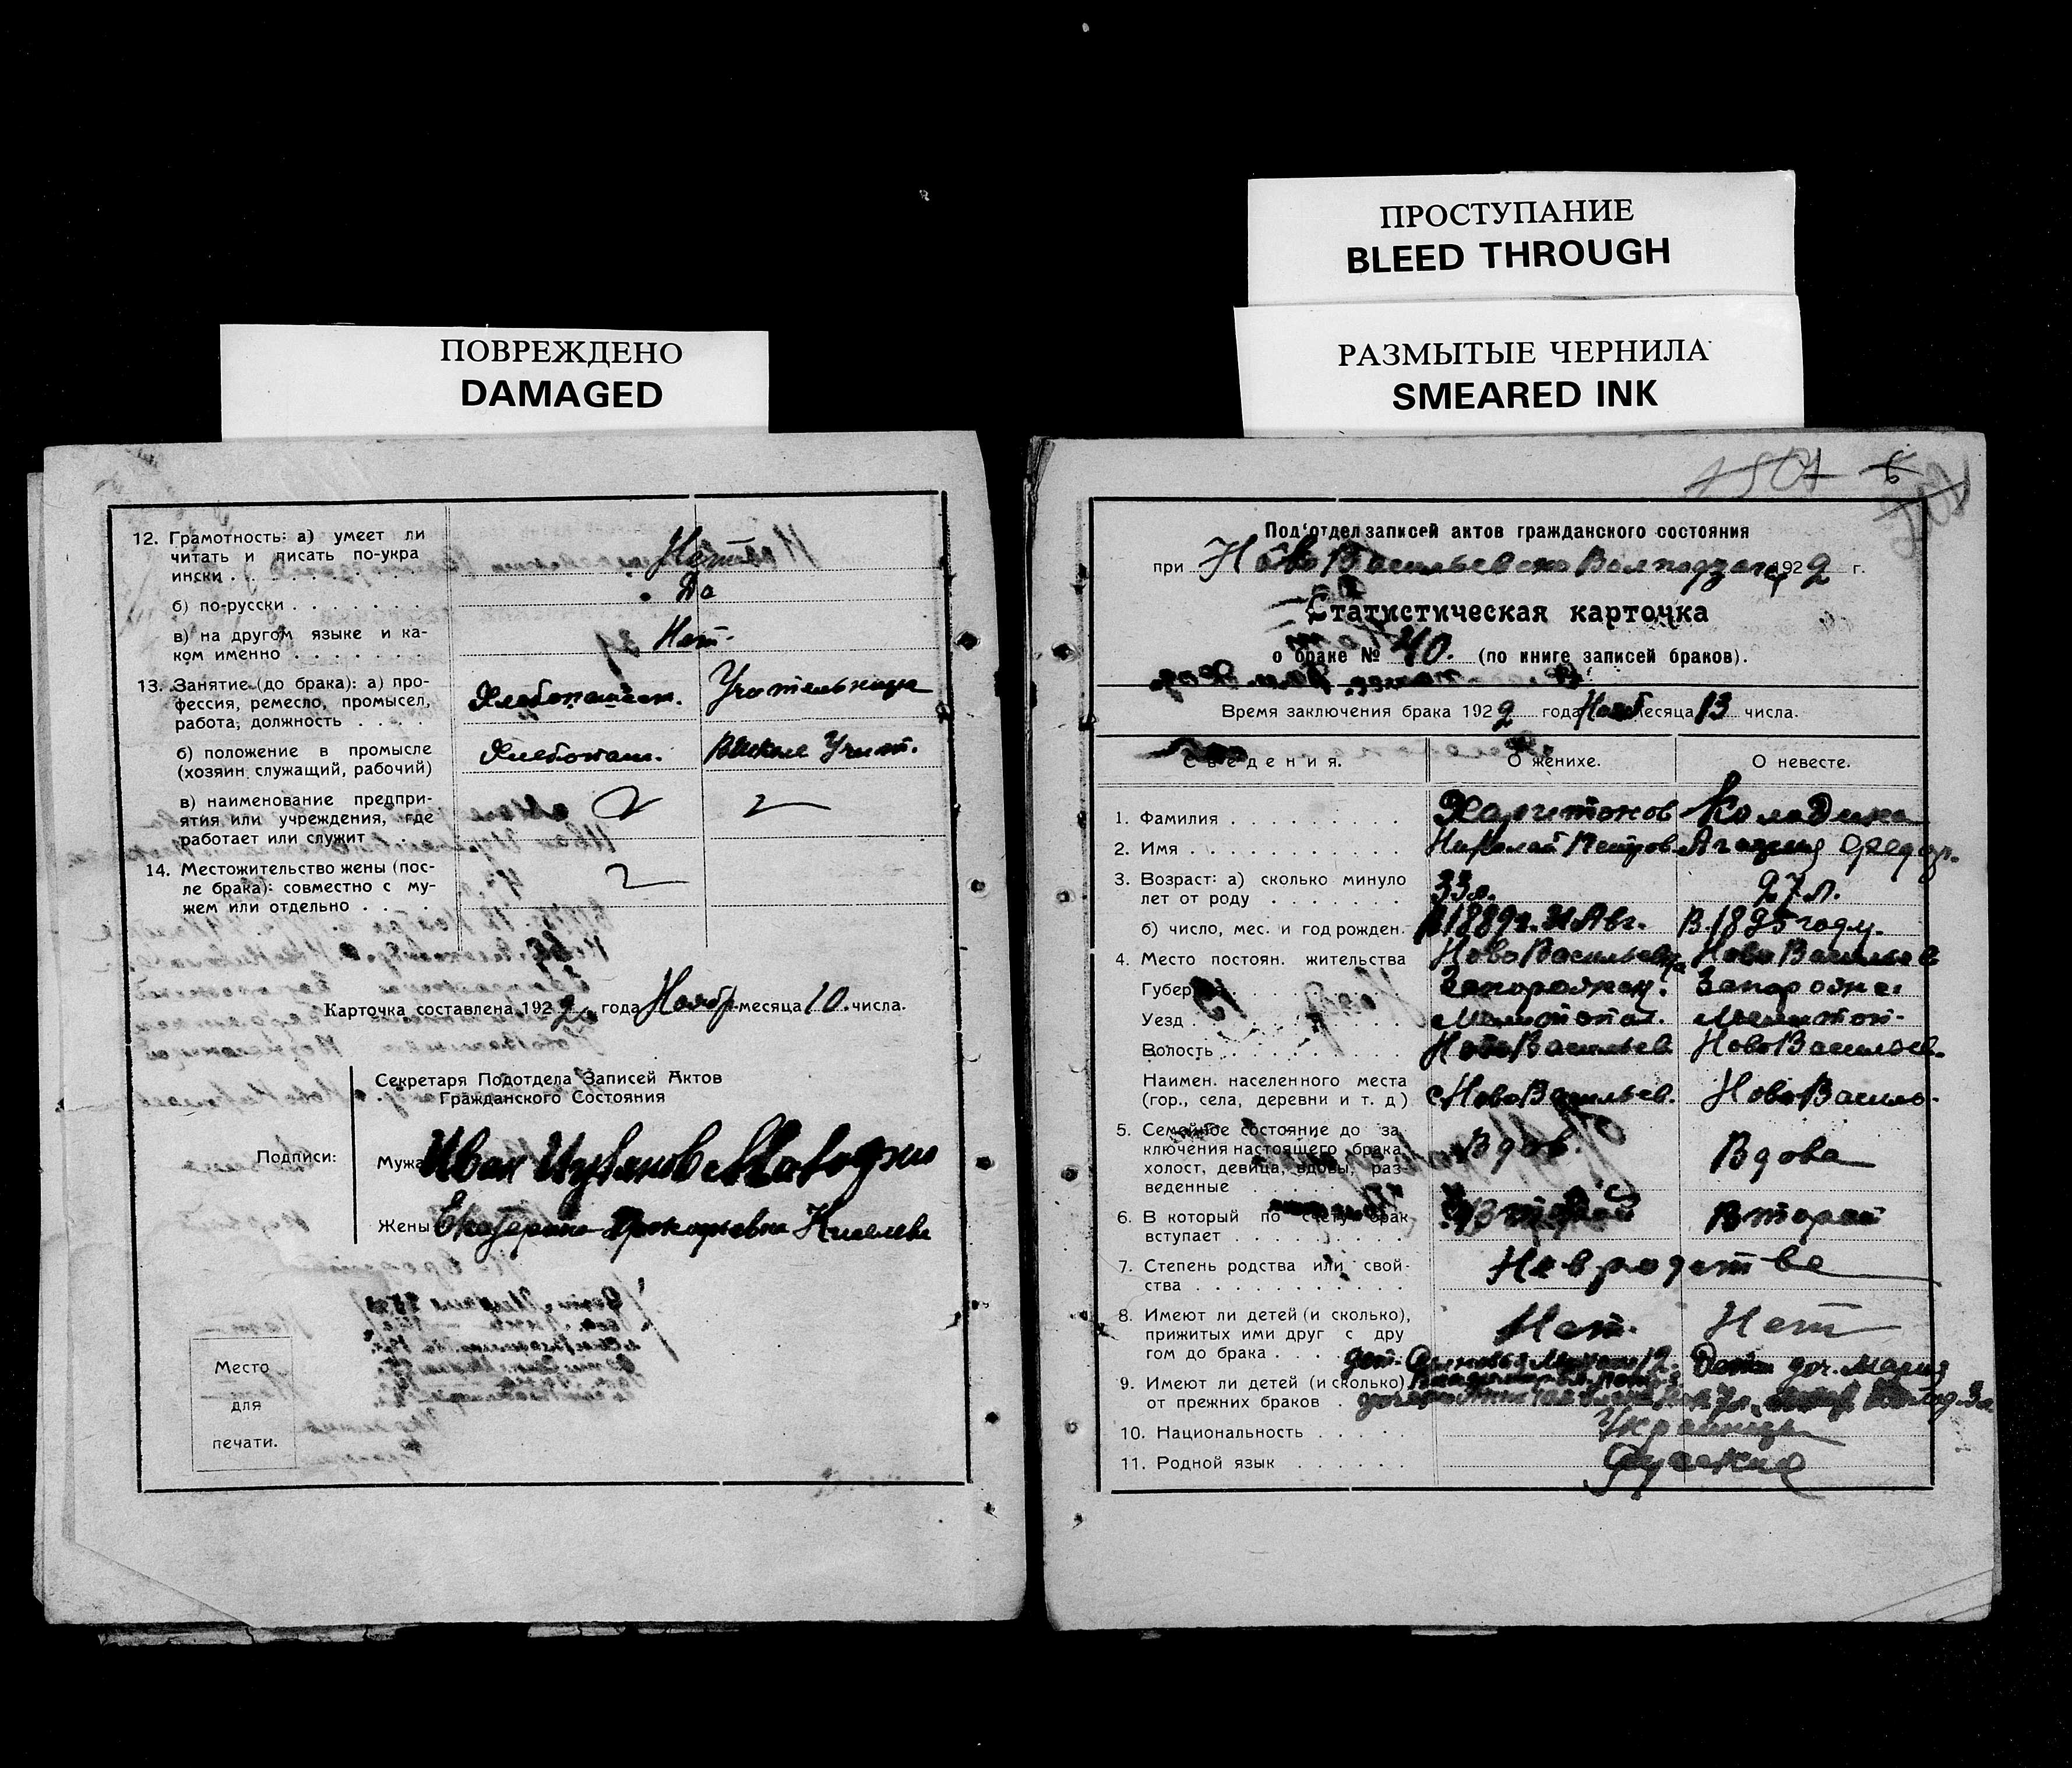 ПРОСТУПАНИЕ
BLEED THROUGH
РАЗМЫТЫЕ ЧЕРНИЛА
SMEARED INK
ПОВРЕЖДЕНО
DAMAGED
12. Грамотность: а) умеет ли
читать и писать по-укра
ински . . . Нет
б) по-русски . . . Да
в) на другом языке и ка-
ком именно . . . Нет.
13. Занятие (до брака): а) про-
фессия, ремесло, промысел,
работа, должность . . . Хлебопашест. Учительница
б) положение в промысле
(хозяин, служащий, рабочий) Хлебопаш. Учит.
в) наименование предпри-
ятия или учреждения, где
работает или служит . . .
14. Местожительство жены (пос-
ле брака): совместно с му-
жем или отдельно . . .
Карточка составлена 1922 года Ноябр месяца 10. числа.
Секретаря Подотдела Записей Актов
Гражданского Состояния
Подписи:
Мужа Иван
Жены Екатерина Прокофьевна Киселева
Место
для
печати.
6
Под'отдел записей актов гражданского состояния
при Ново Васильевско 1922 г.
Статистическая карточка
о браке № 40. (по книге записей браков).
Время заключения брака 1922 года Нояб месяца 13 числа.
Сведения. О женихе. О невесте.
1. Фамилия . . . Харитонов
2. Имя . . . Николай Петров Федор.
3. Возраст: а) сколько минуло
лет от роду . . . 33 л. 27 л.
б) число, мес. и год рожден. В 1889 г. Авг. В 1895 году.
4. Место постоян. жительства НовоВасильевка НовоВасильев
Губер. . . Запорожск. Запорожс.
Уезд . . . Мелитопол. Мелитоп.
Волость . . . НовоВасильев НовоВасильев.
Наимен. населенного места
(гор., села, деревни и т. д.) с НовоВасильев. НовоВасиль.
5. Семейное состояние до за
ключения настоящего брака
холост, девица, вдовы, раз-
веденные . . . Вдов. Вдова
6. В который по счету брак
вступает . . . Второй Второй
7. Степень родства или свой-
ства . . . Не в родстве
8. Имеют ли детей (и сколько),
прижитых ими друг с дру
гом до брака . . . Нет. Нет
9. Имеют ли детей (и сколько) доч. Мария
от прежних браков .
10. Национальность . . . Украинцы
11. Родной язык . . . Русский